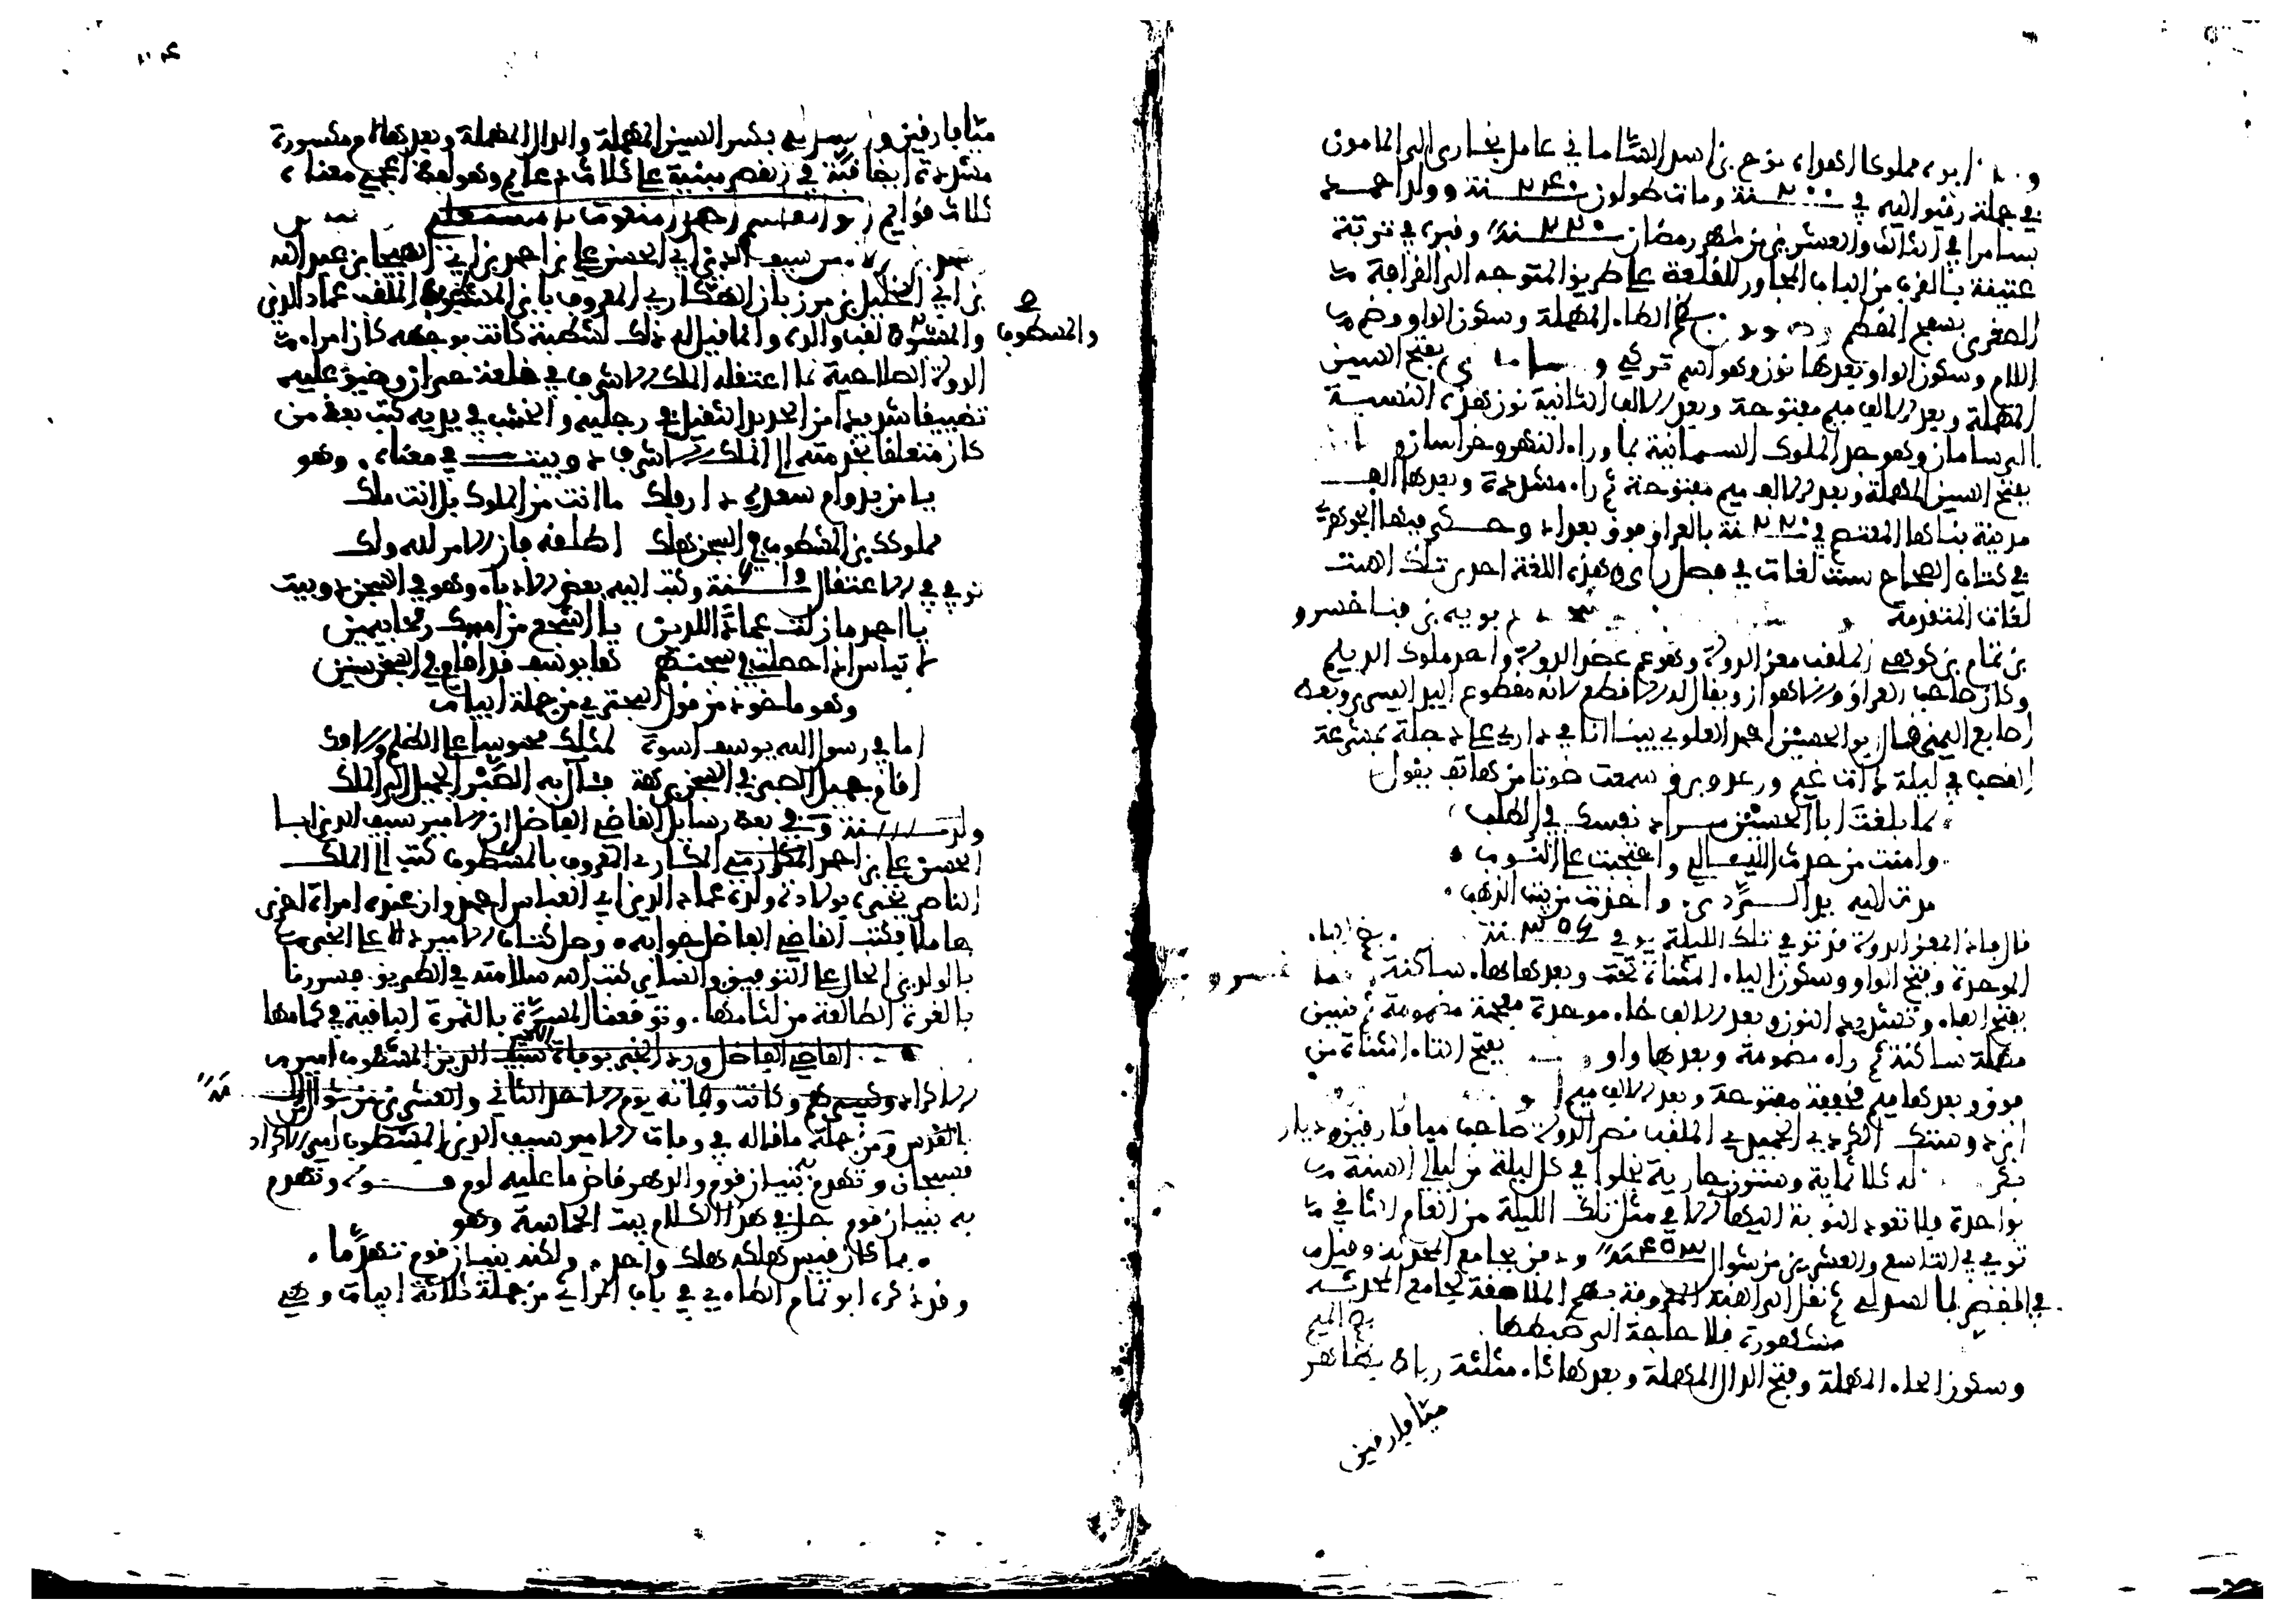 ابوه مملوكا اهداه نوح بن اسد السّاماني عامل بخارى الى المامون
في جملة رقيق اليه في سنة ٢٠٠ ومات طولون سنة ٢٤٠ وولد احمد
بسامرا في الثالث والعشرين من شهر رمضان سنة ٢٢٠ وقبره في تربة
عتيقة بالقرب من الباب المجاور للقلعة على طريق المتوجه الى القرافة
الصغرى بسفح المقطم بضم الطاء المهملة وسكون الواو وضم
اللام وسكون الواو وبعدها نون وهو اسم تركي و بفتح السين
المهملة وبعد الالف ميم مفتوحة وبعد الالف الثانية نون هذه النسبة
الى سامان وهو جد الملوك السمانية بما وراء النهر وخراسان و
بفتح السين المهملة وبعد الالف ميم مفتوحة ثم راء مشددة وبعدها الف
مدينة بناها المعتصم في سنة ٢٢٠ بالعراق فوق بغداد وحكى فيها الجوهري
في كتاب الصحاح ست لغات في فصل راى وهذه اللغة احدى تلك الست
لغات المتقدمة بويه بن فناخسرو
بن تمام بن كوهي الملقب معز الدولة وهو عم عضد الدولة واحد ملوك الديلم
وكان صاحب العراق والاهواز ويقال له الاقطع لانه مقطوع اليد اليسرى وبعض
اصابع اليمنى قال ابو الحسين احمد العلوي بينا انا في داري على دجلة بمشرعة
القصب في ليلة ذات غيم ورعد وبرق سمعت صوتا من هاتف يقول
لما بلغت ابا الحسين مراد نفسك في الطلب
وامنت من حدث الليالي واحتجبت عن النوب
مدت اليه يد الردى واخذت من بيت الذهب
قال فاذا بمعز الدولة قد توفي في تلك الليلة في سنة ٣٥٦
الموحدة وفتح الواو وسكون الياء المثناة تحت وبعدها هاء ساكنة
بفتح الفاء وتشديد النون وبعد الالف خاء موحدة معجمة مضمومة ثم سين
مهملة ساكنة ثم راء مضمومة وبعدها واو بفتح التاء المثناة من
فوق وبعدها ميم مخففة مفتوحة وبعد الالف ميم
الكردي الحميدي الملقب نصر الدولة صاحب ميافارقين وديار
بكر له ثلاثماية وستون جارية يخلوا في كل ليلة من ليالي السنة
بواحدة فلا تعود النوبة اليها الا في مثل تلك الليلة من العام الثاني
توفي في التاسع والعشرين من شوال سنة ٤٥٣ ودفن بجامع المحدثة وقيل
في القصر بالسدلي ثم نقل الى القبة المعروفة بهم الملاصقة لجامع المحدثة
مشهورة فلا حاجة الى ضبطها
وسكون الحاء المهملة وفتح الدال المهملة وبعدها ثاء مثلثة رباط بظاهر
ميّافارقين
ميّافارقين و بكسر السين المهملة والدال المهملة وبعدها لام مكسورة
مشددة ايضا قبة في القصر مبنية على ثلاث دعايم وهو لفظ اعجمي معناه
ثلاث قوايم
بن سيف الدين ابي الحسن علي بن احمد بن ابي الهيجا بن عبد الله
بن ابي الخليل بن مرزبان الهكاري المعروف بابن المشطوب الملقب عماد الدين
والمشطوب
والمشطوب لقب والده وانما قيل له ذلك لشطبة كانت بوجهه كان امراء
الدولة الصلاحية لما اعتقله الملك الاشرف في قلعة حران وضيق عليه
تضييقا شديدا من الحديد الثقيل في رجليه والخشب في يديه كتب بعض من
كان متعلقا بخدمته الى الملك الاشرف دوبيت في معناه وهو
يا من بدوام سعده دار فلك ما انت من الملوك بل انت ملك
مملوكك بن المشطوب في السجن هلك اطلقه فان الامر لله ولك
توفي في الاعتقال سنة وكتب اليه بعض الادباء وهو في السجن دوبيت
يا احمد ما زلت عمادا للدين يا اشجع من امسك رمحا بيمين
لا تياس اذا حصلت في سجنهم ها يوسف قد اقام في السجن سنين
وهو ماخوذ من قول البحتري من جملة ابيات
اما في رسول الله يوسف اسوة لمثلك محبوسا على الظلم والافك
اقام جميل الصبر في السجن برهة فآل به الصبر الجميل الى الملك
ولد سنة وفي بعض رسايل القاضي الفاضل ان الامير سيف الدين ابا
الحسن علي بن احمد الهكاري المعروف بالمشطوب كتب الى الملك
الناصر يخبره بولادة ولده عماد الدين ابي العباس احمد وان عنده امراة اخرى
حاملا فكتب القاضي الفاضل جوابه وصل كتاب الامير دالا على الخبر
بالولدين الحال على التوفيق والساير كتب الله سلامته في الطريق فسررنا
بالغرة الطالعة من لثامها وتوقعنا المسرة بالثمرة الباقية في كمامها
القاضي الفاضل ورد الخبر بوفاة الامير سيف الدين المشطوب امير
الاكراد وكبيرهم وكانت وفاته يوم الاحد الثاني والعشرين من شوال
بالقدس ومن جملة ما قاله في وفاة الامير سيف الدين المشطوب امير الاكراد
فسبحان وتهدم به بنيان قوم والدهر قاض ما عليه لوم وتهدم
به بنيان قوم حل في هذا الكلام بيت الحماسة وهو
فما كان قيس هلكه هلك واحد ولكنه بنيان قوم تهدّما
وقد ذكره ابو تمام الطاءي في باب المراثي من جملة ثلاثة ابيات وهي